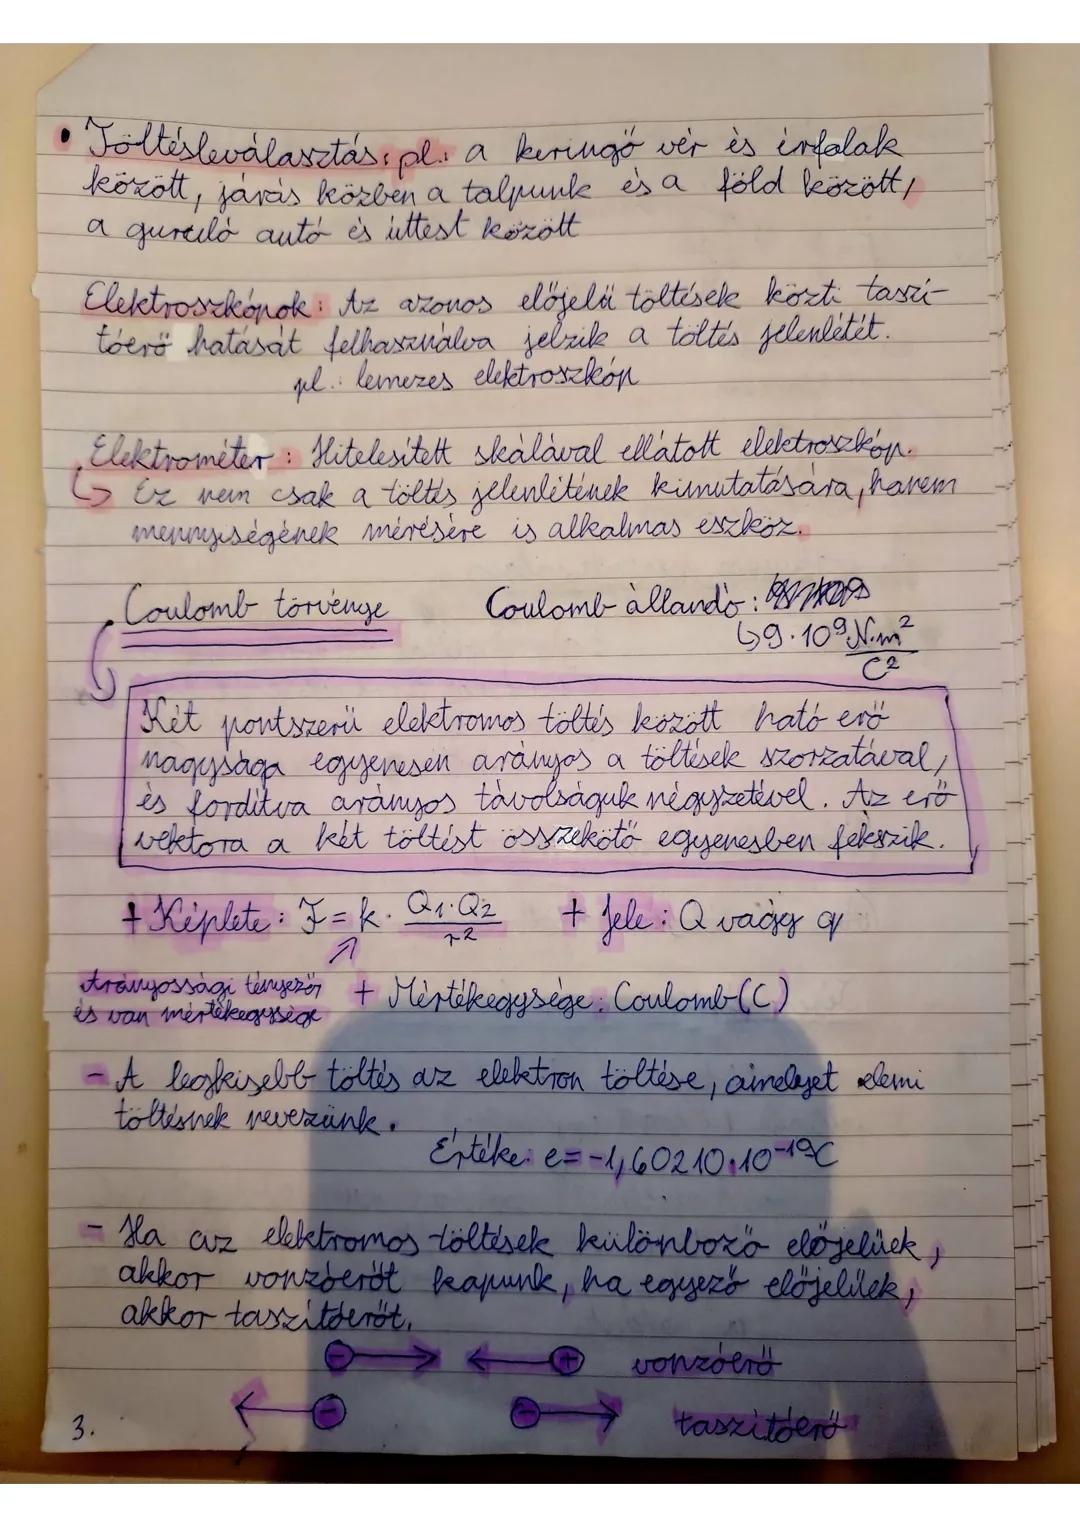 • Töltésleválasztás: pl.: a keringő vér és érfalak
között, járás közben a talpunk és a föld között,
a guruló autó és úttest között
Elektroszkópok: Az azonos előjelű töltések közti taszí-
tóerő hatását felhasználva jelzik a töltés jelenlétét.
pl.: lemezes elektroszkóp
Elektrométer: Hitelesített skálával ellátott elektroszkóp.
↳ Ez nem csak a töltés jelenlétének kimutatására, hanem
mennyiségének mérésére is alkalmas eszköz.
Coulomb törvénye Coulomb állandó:
↳ 9·10⁹ N·m²/C²
Két pontszerű elektromos töltés között ható erő
nagysága egyenesen arányos a töltések szorzatával,
és fordítva arányos távolságuk négyzetével. Az erő
vektora a két töltést összekötő egyenesben fekszik.
+ Képlete: F = k · Q₁·Q₂/r² + Jele: Q vagy q
Arányossági tényező,
és van mértékegysége + Mértékegysége: Coulomb (C)
- A legkisebb töltés az elektron töltése, amelyet elemi
töltésnek nevezünk.
Értéke: e = -1,60210·10⁻¹⁹C
- Ha az elektromos töltések különböző előjelűek,
akkor vonzóerőt kapunk, ha egyező előjelűek,
akkor taszítóerőt.
⊖→ ←⊕ vonzóerő
←⊖ ⊖→ taszítóerő
3.